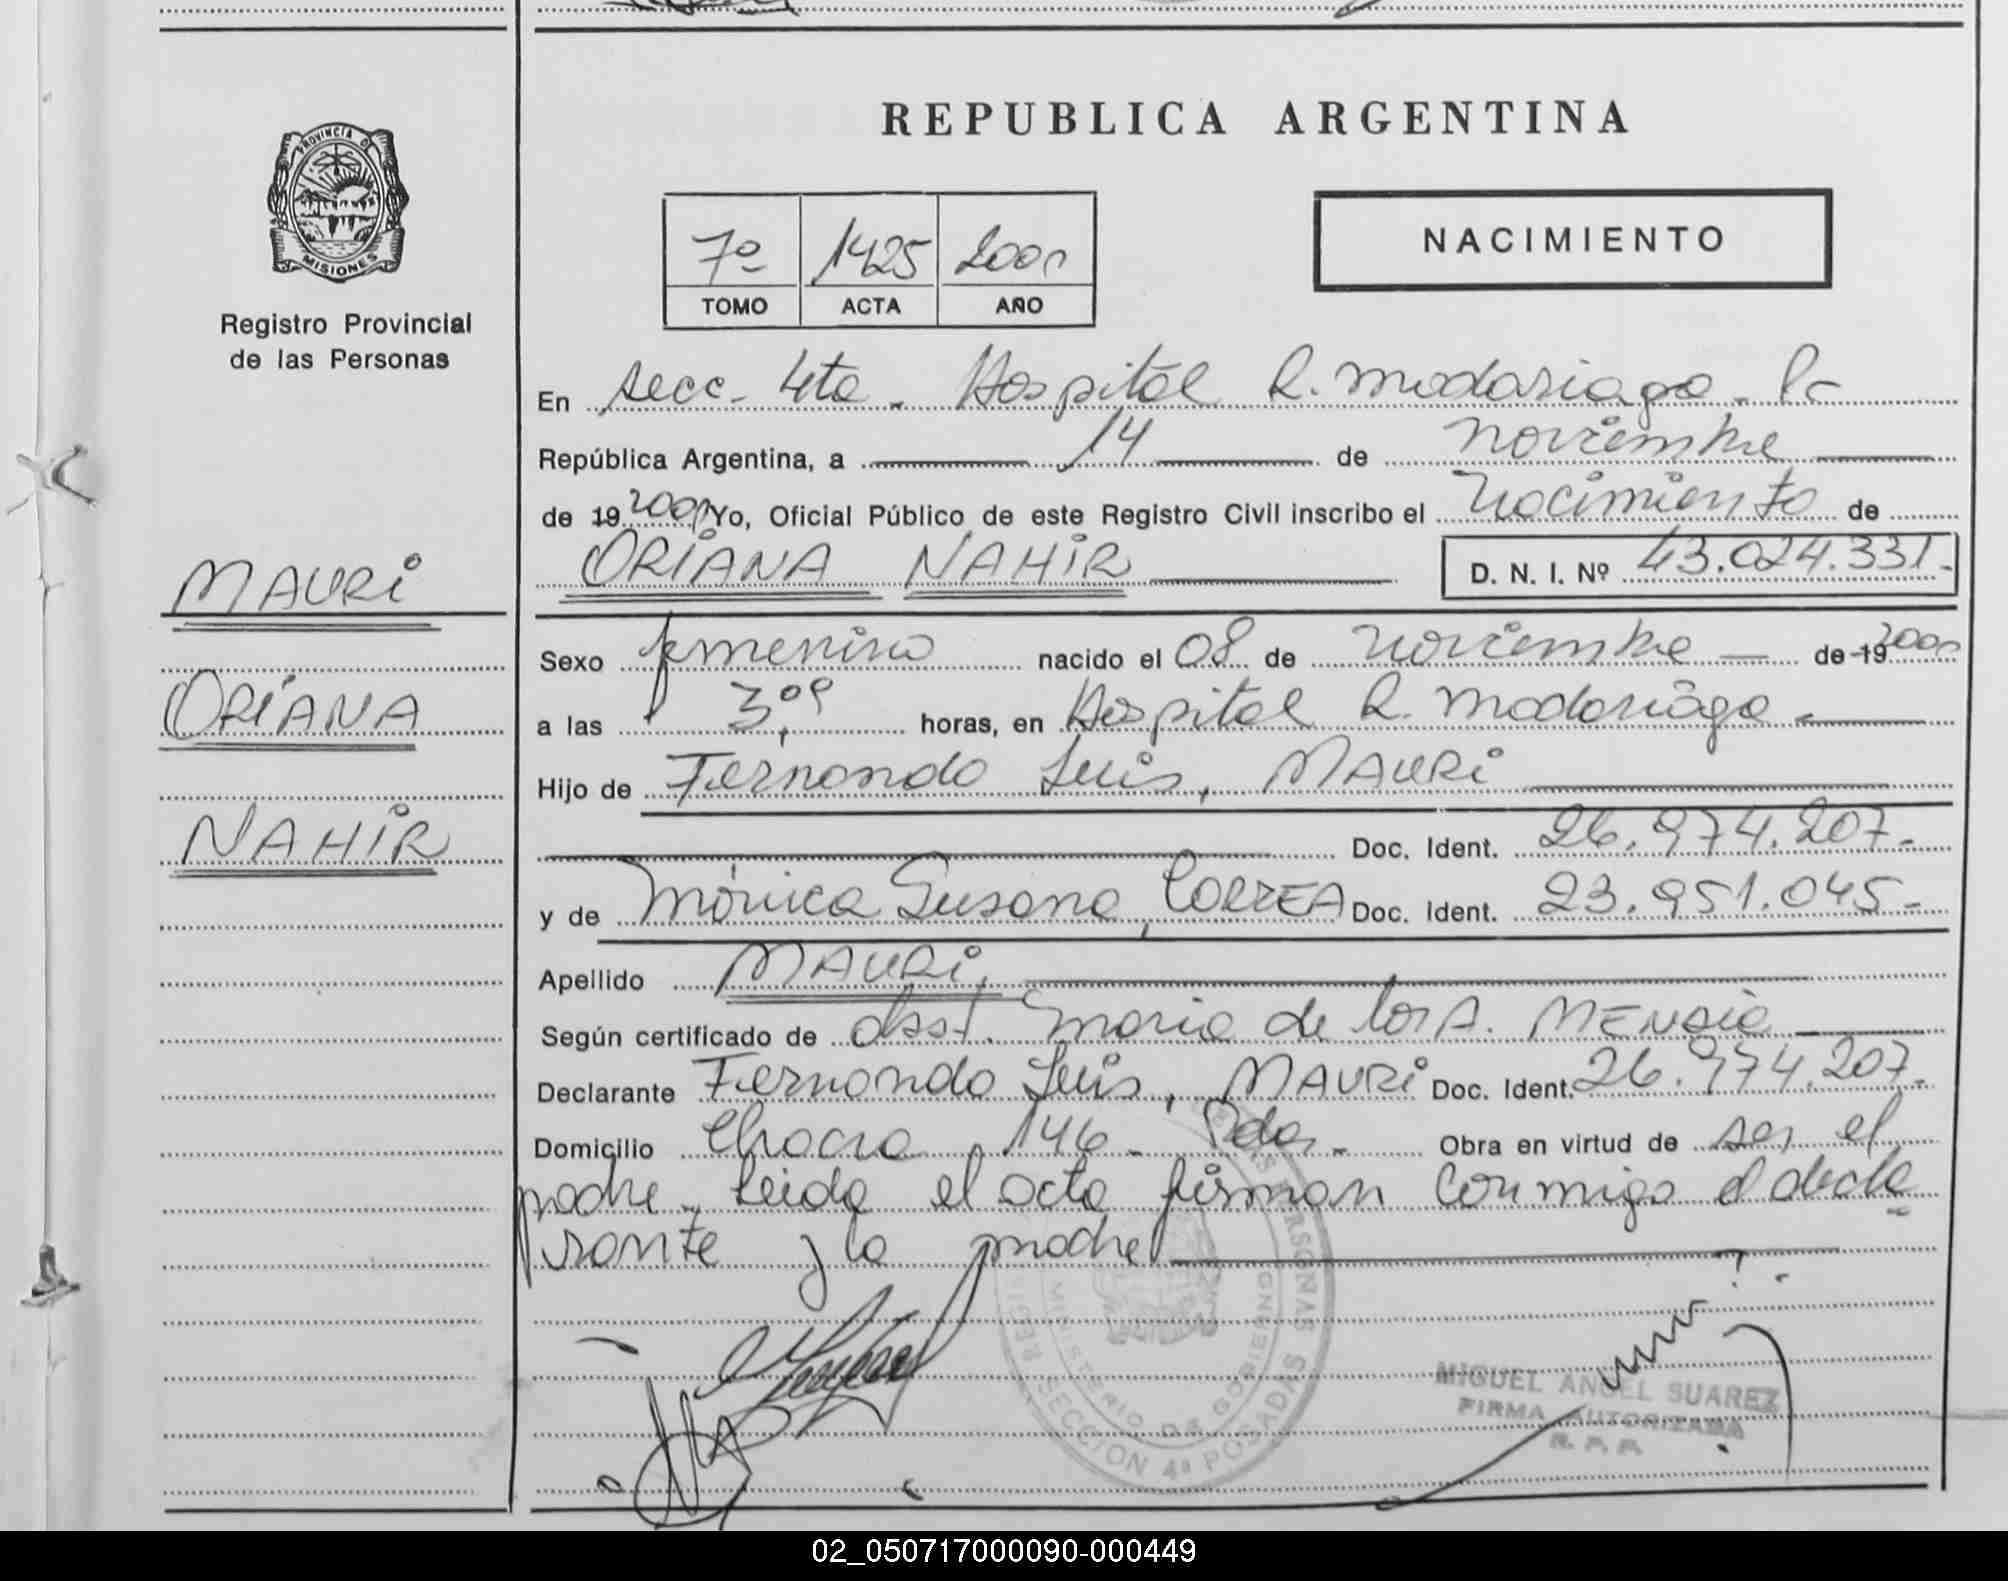 REPUBLICA ARGENTINA
PROVINCIA DE
MISIONES
Registro Provincial
de las Personas
7º 1425 2000
TOMO ACTA AÑO
NACIMIENTO
En secc. 4ta. Hospital R. Madariaga. Pc
República Argentina, a 14 de noviembre
de 19 2000 Yo, Oficial Público de este Registro Civil inscribo el nacimiento de
ORIANA NAHIR D. N. I. Nº 43.024.331.
MAURI
ORIANA
NAHIR
Sexo femenino nacido el 08 de noviembre de 19 2000
a las 3,09 horas, en Hospital R. Madariaga
Hijo de Fernando Luis, MAURI
Doc. Ident. 26.974.207.
y de Mónica Susana, CORREA Doc. Ident. 23.951.045.
Apellido MAURI.
Según certificado de obst. Maria de los A.
Declarante Fernando Luis, MAURI Doc. Ident. 26.974.207.
Domicilio Chacra 146. Pdas. Obra en virtud de ser el
padre. Leida el acta firman conmigo el decla
rante y la madre
MINISTERIO DE GOBIERNO
SECCION 4ª POSADAS
MIGUEL ANGEL SUAREZ
FIRMA AUTORIZADA
R. P. P.
02_050717000090-000449